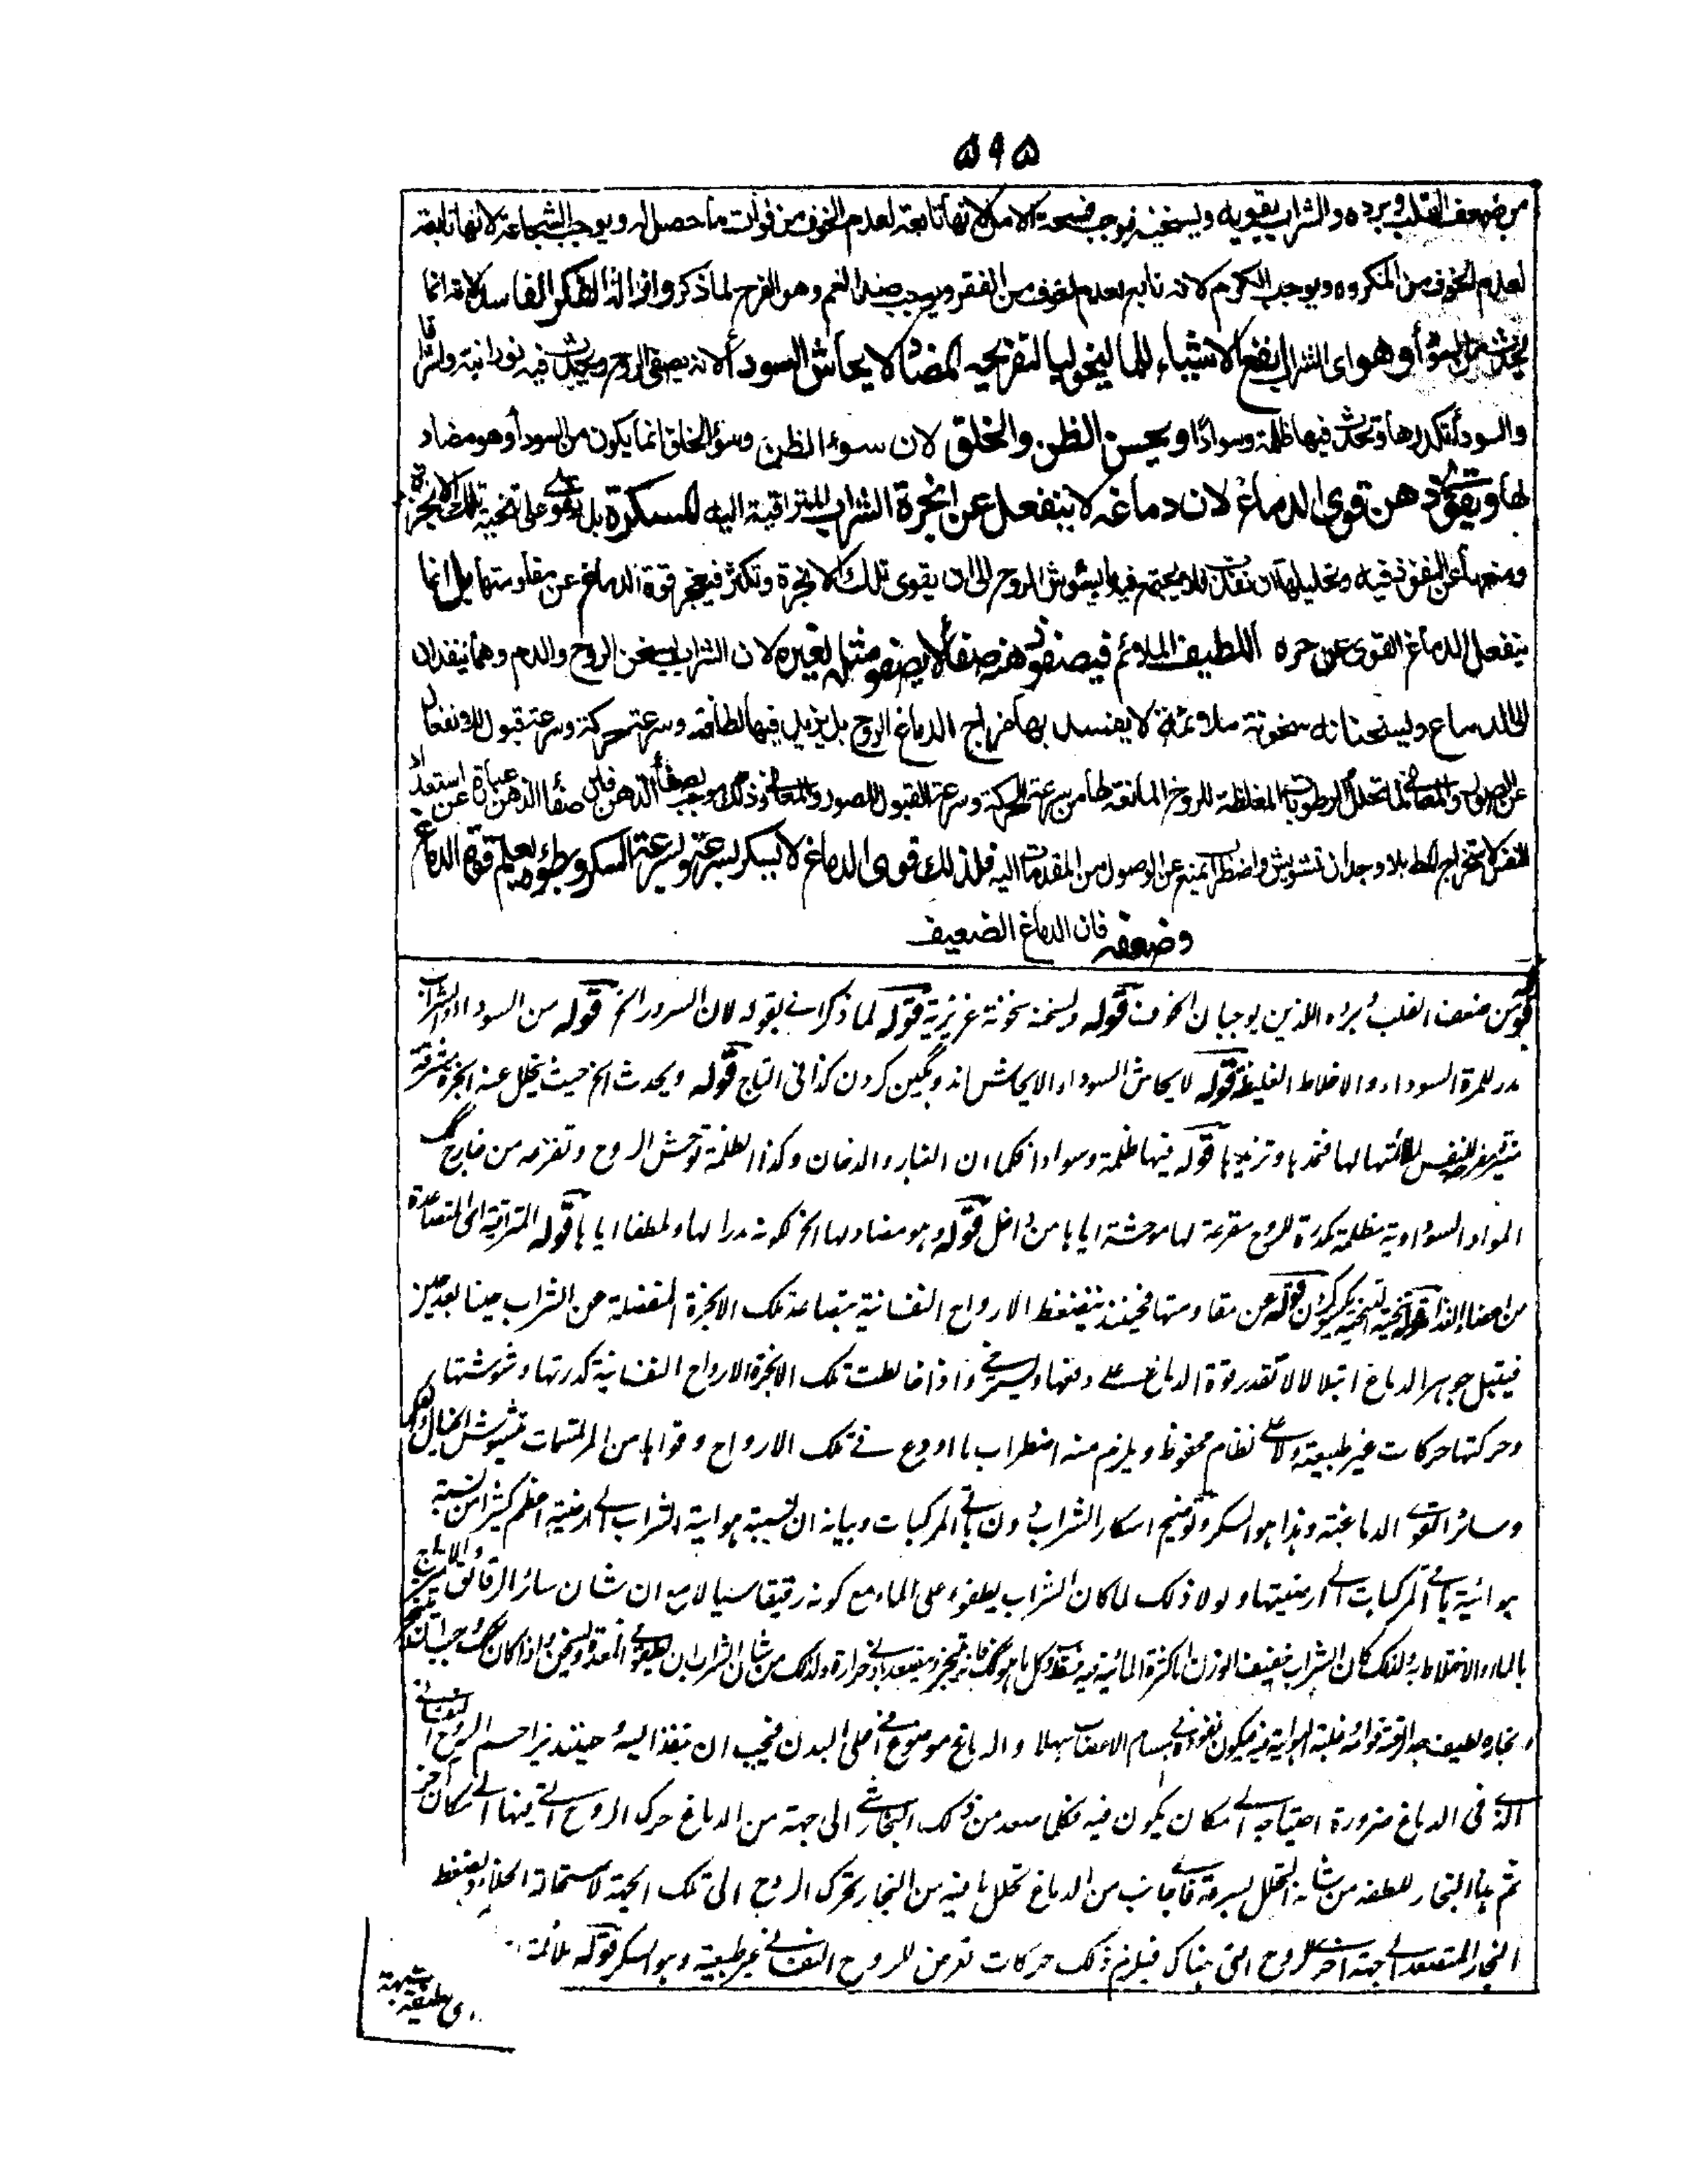 ٥٩٥
من ضعف القلب وبرده والشراب يقويه ويسخنه فيوجب فسحة الامل لانها تابعة لعدم الخوف من فوات ما حصل له ويوجب الشجاعة لانها تابعة
لعدم الخوف من المكروه ويوجب الكرم لانه تابع لعدم الخوف من الفقر ويوجب ضد الغم وهو الفرح لما ذكر وازالة الفكر الفاسد لانه انما
يحدث من السودأ وهو اى الشراب انفع الاشياء للماليخوليا لتفريحه المضاد لايحاش السودأ لانه يصفى الروح ويحدث فيه نورانية واشراقا
والسودأ تكدرها وتحدث فيها ظلمة وسوادًا ويحسن الظن والخلق لان سوء الظن وسوء الخلق انما يكون من السودأ وهو مضاد
لها ويقوى ذهن قوى الدماغ لان دماغه لا ينفعل عن ابخرة الشراب المتراقية اليه المسكرة بل يقوى على تنحية تلك الابخرة
ومنعها عن النفوذ فيه وتحليلها ان نفذت فلا يجتمع فيه ما يشوش الروح الى ان يقوى تلك الابخرة وتكثر فيعجز قوة الدماغ عن مقاومتها بل انما
ينفعل الدماغ القوى عن حره اللطيف الملائم فيصفو ذهنه صفأ لا يصفو مثله لغيره لان الشراب يسخن الروح والدم وهما ينفذان
الى الدماغ ويسخنانه سخونة ملائمة لا يفسد بها مزاج الدماغ الروح بل يزيد فيها لطافة وسرعة حركة وسرعة قبول للانفعال
عن الصور والمعانى لما تحلل الرطوبات المغلظة للروح المانعة لها من سرعة الحركة وسرعة القبول للصور والمعانى وذلك موجب لصفأ الذهن فان صفأ الذهن عبارة عن استعداد
النفس لاستخراج المط بلا وجدان تشويش واضطراب يمنع عن الوصول من المقدمات اليه فلذلك قوى الدماغ لا يسكر بسرعة وبسرعة السكر وبطؤه يعلم قوة الدماغ
وضعفه فان الدماغ الضعيف
قوله من ضعف القلب وبرده اللذين يوجبان الخوف قوله ويسخنه سخونة غريزية قوله لما ذكر اے بقوله لان السرور الخ قوله من السوداء والشراب
مدر للمرة السوداء والاخلاط الغليظة قوله لايحاش السوداء الايحاش اندوہگین کردن كذا فى التاج قوله ويحدث الخ حيث يتحلل عنه ابخرة مشرقة
للنفس لملائمتها لها فتمدها وتزيدها قوله فيها ظلمة وسوادا فكما ان الغبار والدخان وكذا الظلمة توحش الروح وتفزعه من خارج كك
المواد السوداوية مظلمة مكدرة للروح مفزعة لها موحشة اياها من داخل قوله وهو مضاد لها الخ لكونه مدرا لها وملطفا اياها قوله المتراقية اى المتصاعدة
من اعضاء الغذاء قوله عن مقاومتها فحينئذ ينضغط الارواح النفسانية بتصاعد تلك الابخرة المنفصلة عن الشراب حينا بعد حين
فيبتل جوهر الدماغ ابتلالا لا تقدر قوة الدماغ على دفعها ويسترخى واذا خالطت تلك الابخرة الارواح النفسانية كدرتها وشوشتها
وحركتها حركات غير طبيعية ولا على نظام محفوظ ويلزم منه اضطراب ما اودع فى تلك الارواح وقواها من المرتسمات فتشوش الخيال والفكر
وسائر القوى الدماغية وهذا هو السكر وتوضيح اسكار الشراب دون باقى المركبات وبيانه ان نسبة هوائية الشراب الى ارضيته اعظم كثيرا من نسبة
هوائية باقى المركبات الى ارضيتها ولولا ذلك لما كان الشراب يطفو على الماء مع كونه رقيقا سيالا مع ان شان سائر الرقائق
بالماء والاختلاط به ولذلك كان الشراب خفيف الوزن
بخاره لطيف جدا لرقة قوامه ولغلبة الهوائية فيه فيكون نفوذه فى مسام الاعضاء سهلا والدماغ موضوع فى اعلى البدن فيجب ان ينفذ اليه وحينئذ يزاحم الروح النفسانى
الذى فى الدماغ ضرورة احتياجه الى مكان يكون فيه فكلما صعد من ذلك البخار شئ الى جهة من الدماغ حرك الروح التى فيها الى مكان آخر
ثم هذا البخار للطفه من شانه التحلل بسرعة فاى جانب من الدماغ تحلل ما فيه من البخار تحرك الروح الى تلك الجهة لاستحالة الخلاء ويضغط
البخار المتصعد الى جهة اخرى الروح التى هناك فيلزم ذلك حركات تعرض للروح النفسانى غير طبيعية وهو السكر قوله ملائمة